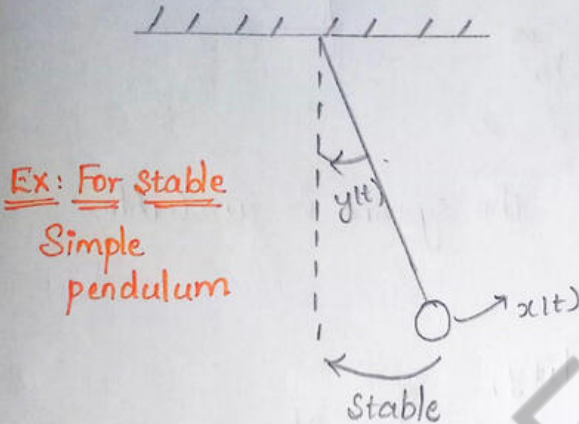 Ex: For stable
Simple
pendulum
y(t)
x(t)
Stable